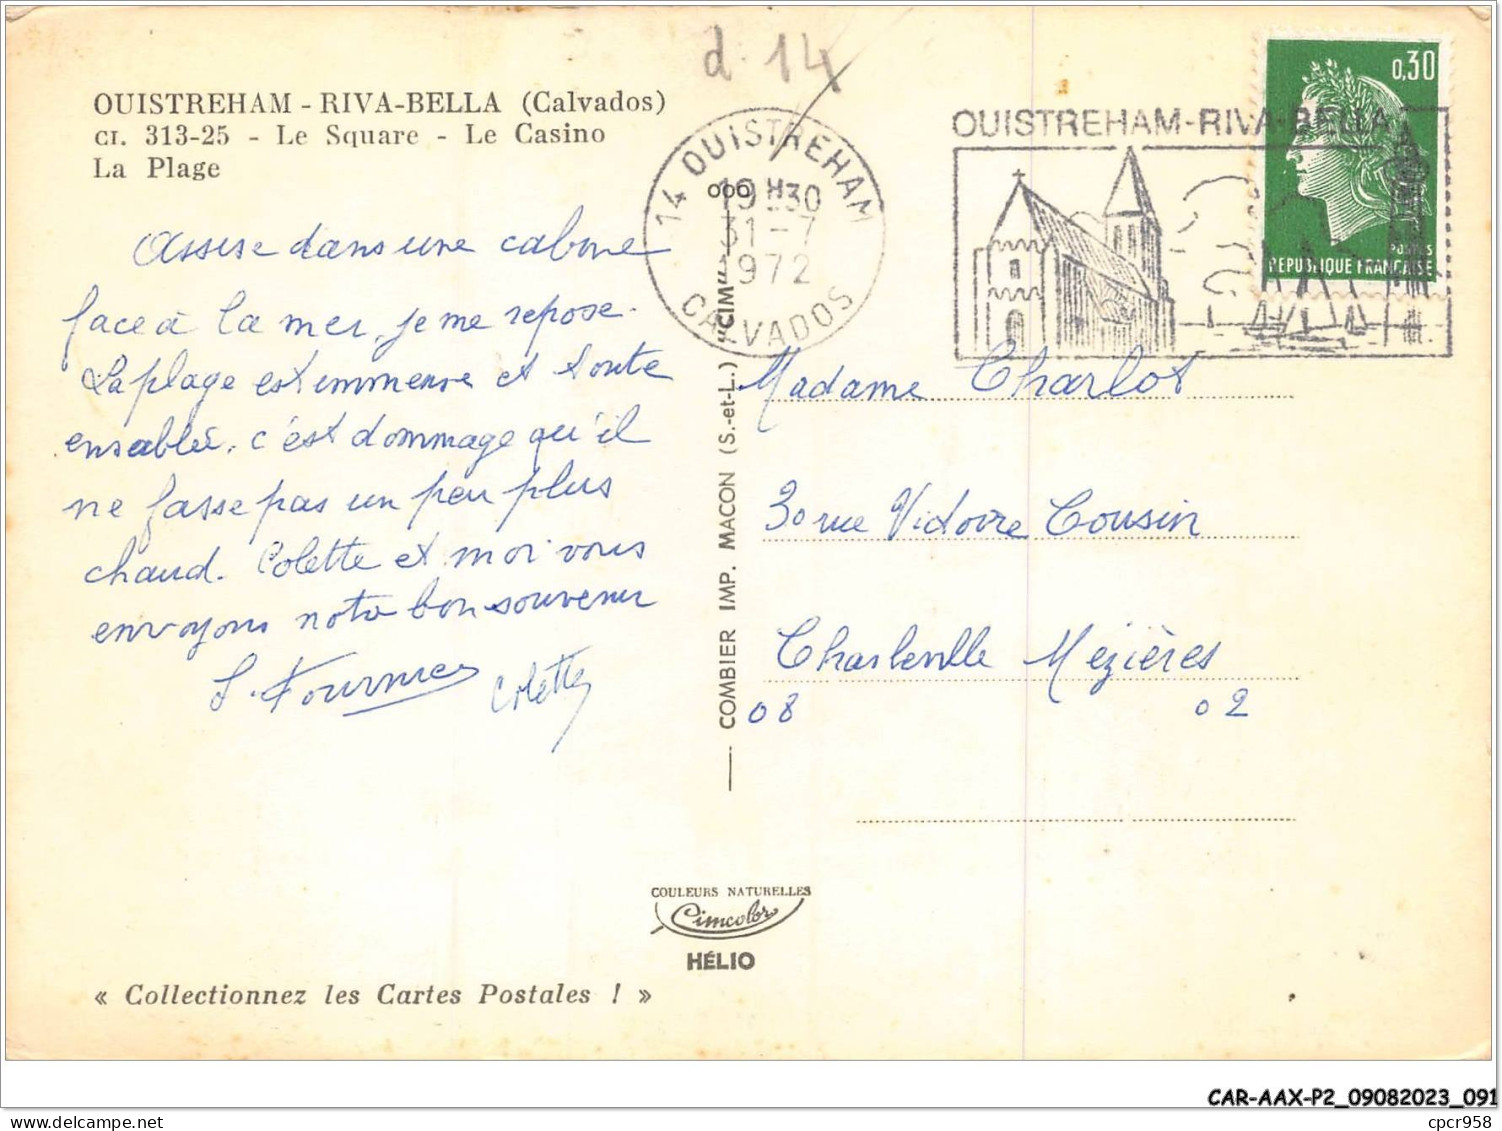 d. 14
OUISTREHAM - RIVA-BELLA (Calvados)
CI. 313-25 - Le Square - Le Casino
La Plage
14 OUISTREHAM
19H30
31-7
1972
CALVADOS
OUISTREHAM-RIVA-BELLA
0,30
POSTES
REPUBLIQUE FRANÇAISE
Assise dans une cabine
face à la mer, je me repose.
La plage est immense et toute
ensablée. c'est dommage qu'il
ne fasse pas un peu plus
chaud. Colette et moi vous
envoyons notre bon souvenir
Colette
Madame Charlot
30 rue Victoire Cousin
Charleville Mézières
08 02
COMBIER IMP. MACON (S.-et-L.) "CIM"
COULEURS NATURELLES
Cimcolor
HÉLIO
« Collectionnez les Cartes Postales ! »
CAR-AAX-P2_09082023_091
cpcr958